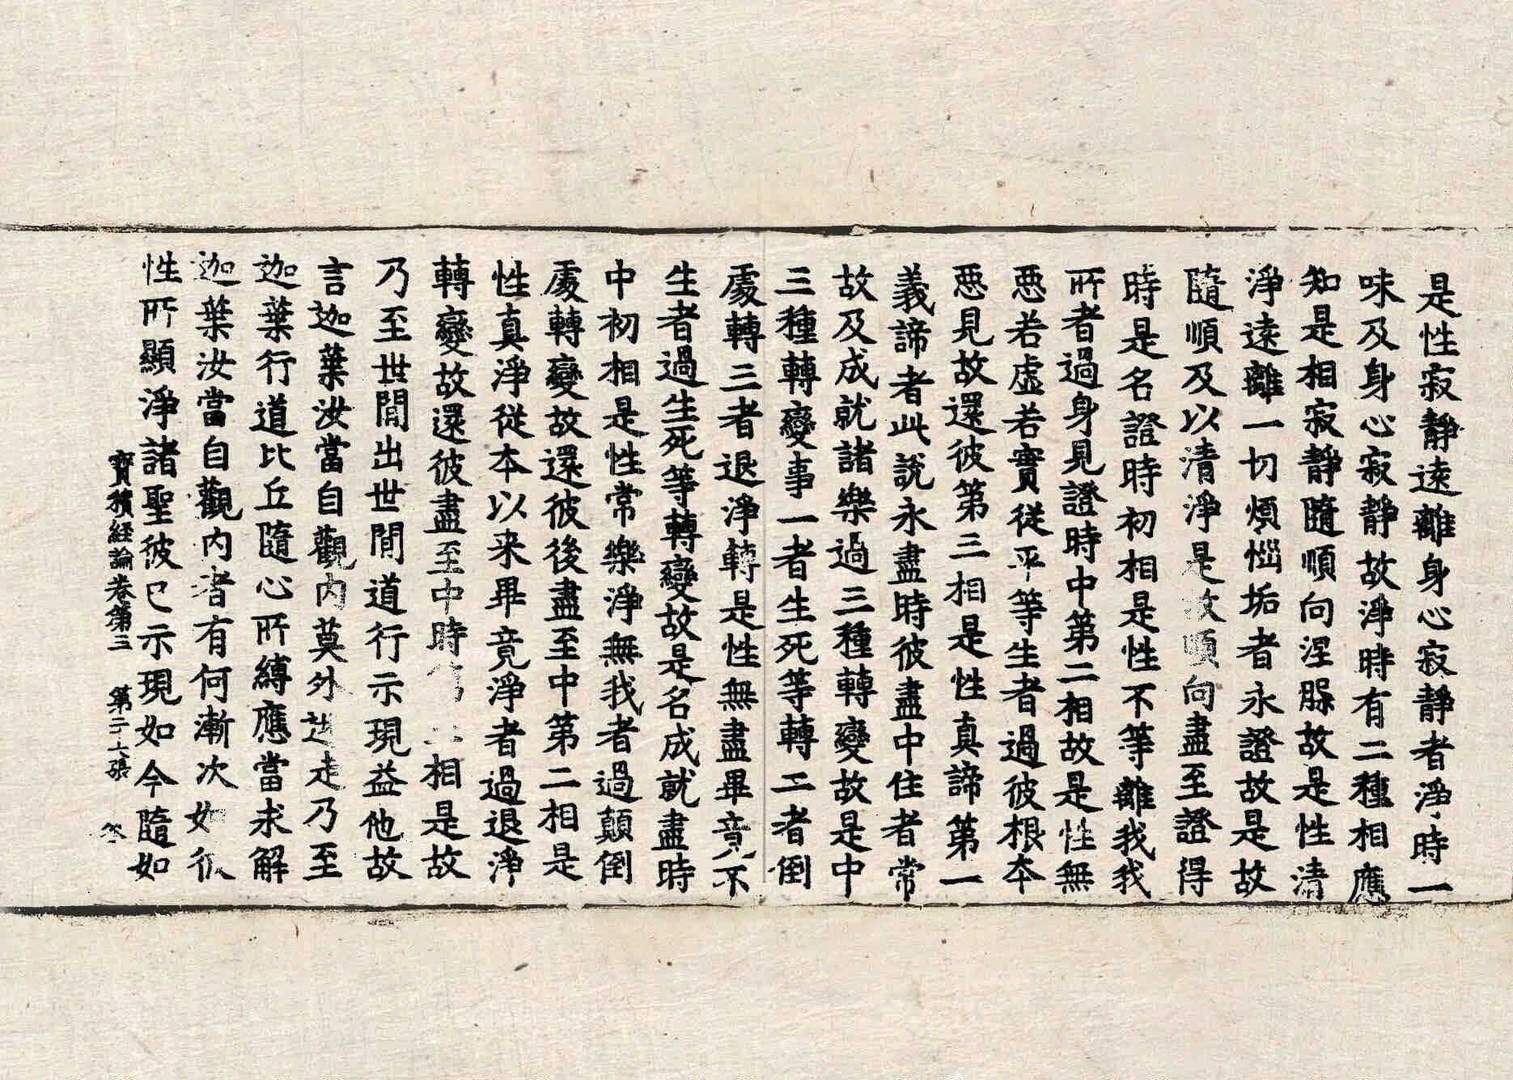 是性寂靜遠離身心寂靜者淨時一
味及身心寂靜故淨時有二種相應
知是相寂靜隨順向涅槃故是性清
淨遠離一切煩惱垢者永證故是故
隨順及以清淨是故順向盡至證得
時是名證時初相是性不等離我我
所者過身見證時中第二相故是性無
惡若虛若實從平等生者過彼根本
惡見故還彼第三相是性真諦第一
義諦者此說永盡時彼盡中住者常
故及成就諸樂過三種轉變故是中
三種轉變事一者生死等轉二者倒
處轉三者退淨轉是性無盡畢竟不
生者過生死等轉變故是名成就盡時
中初相是性常樂淨無我者過顛倒
處轉變故還彼後盡至中第二相是
性真淨從本以来畢竟淨者過退淨
轉變故還彼盡至中時相是故
乃至世間出世間道行示現益他故
言迦葉汝當自觀內莫外走乃至
迦葉行道比丘隨心所縛應當求解
迦葉汝當自觀內者有何漸次如彼
性所顯淨諸聖彼已示現如今隨如
寶積經論卷第三 第二十張